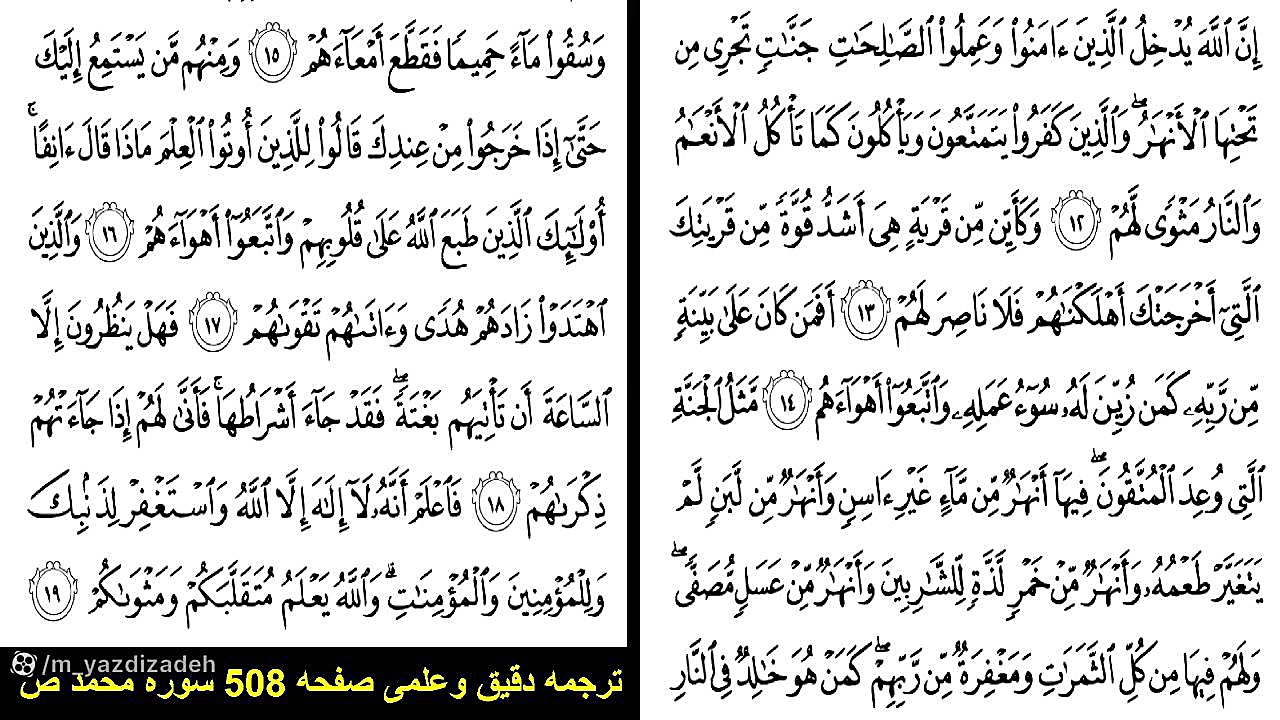 إِنَّ ٱللَّهَ يُدْخِلُ ٱلَّذِينَ ءَامَنُوا۟ وَعَمِلُوا۟ ٱلصَّـٰلِحَـٰتِ جَنَّـٰتٍ تَجْرِى مِن
تَحْتِهَا ٱلْأَنْهَـٰرُ ۖ وَٱلَّذِينَ كَفَرُوا۟ يَتَمَتَّعُونَ وَيَأْكُلُونَ كَمَا تَأْكُلُ ٱلْأَنْعَـٰمُ
وَٱلنَّارُ مَثْوًى لَّهُمْ ١٢ وَكَأَيِّن مِّن قَرْيَةٍ هِىَ أَشَدُّ قُوَّةً مِّن قَرْيَتِكَ
ٱلَّتِىٓ أَخْرَجَتْكَ أَهْلَكْنَـٰهُمْ فَلَا نَاصِرَ لَهُمْ ١٣ أَفَمَن كَانَ عَلَىٰ بَيِّنَةٍ
مِّن رَّبِّهِۦ كَمَن زُيِّنَ لَهُۥ سُوٓءُ عَمَلِهِۦ وَٱتَّبَعُوٓا۟ أَهْوَآءَهُم ١٤ مَّثَلُ ٱلْجَنَّةِ
ٱلَّتِى وُعِدَ ٱلْمُتَّقُونَ ۖ فِيهَآ أَنْهَـٰرٌ مِّن مَّآءٍ غَيْرِ ءَاسِنٍ وَأَنْهَـٰرٌ مِّن لَّبَنٍ لَّمْ
يَتَغَيَّرْ طَعْمُهُۥ وَأَنْهَـٰرٌ مِّنْ خَمْرٍ لَّذَّةٍ لِّلشَّـٰرِبِينَ وَأَنْهَـٰرٌ مِّنْ عَسَلٍ مُّصَفًّى ۖ
وَلَهُمْ فِيهَا مِن كُلِّ ٱلثَّمَرَٰتِ وَمَغْفِرَةٌ مِّن رَّبِّهِمْ ۖ كَمَنْ هُوَ خَـٰلِدٌ فِى ٱلنَّارِ
وَسُقُوا۟ مَآءً حَمِيمًا فَقَطَّعَ أَمْعَآءَهُمْ ١٥ وَمِنْهُم مَّن يَسْتَمِعُ إِلَيْكَ
حَتَّىٰٓ إِذَا خَرَجُوا۟ مِنْ عِندِكَ قَالُوا۟ لِلَّذِينَ أُوتُوا۟ ٱلْعِلْمَ مَاذَا قَالَ ءَانِفًا ۚ
أُو۟لَـٰٓئِكَ ٱلَّذِينَ طَبَعَ ٱللَّهُ عَلَىٰ قُلُوبِهِمْ وَٱتَّبَعُوٓا۟ أَهْوَآءَهُمْ ١٦ وَٱلَّذِينَ
ٱهْتَدَوْا۟ زَادَهُمْ هُدًى وَءَاتَىٰهُمْ تَقْوَىٰهُمْ ١٧ فَهَلْ يَنظُرُونَ إِلَّا
ٱلسَّاعَةَ أَن تَأْتِيَهُم بَغْتَةً ۖ فَقَدْ جَآءَ أَشْرَاطُهَا ۚ فَأَنَّىٰ لَهُمْ إِذَا جَآءَتْهُمْ
ذِكْرَىٰهُمْ ١٨ فَٱعْلَمْ أَنَّهُۥ لَآ إِلَـٰهَ إِلَّا ٱللَّهُ وَٱسْتَغْفِرْ لِذَنۢبِكَ
وَلِلْمُؤْمِنِينَ وَٱلْمُؤْمِنَـٰتِ ۗ وَٱللَّهُ يَعْلَمُ مُتَقَلَّبَكُمْ وَمَثْوَىٰكُمْ ١٩
/m_yazdizadeh
ترجمه دقیق وعلمی صفحه 508 سوره محمد ص